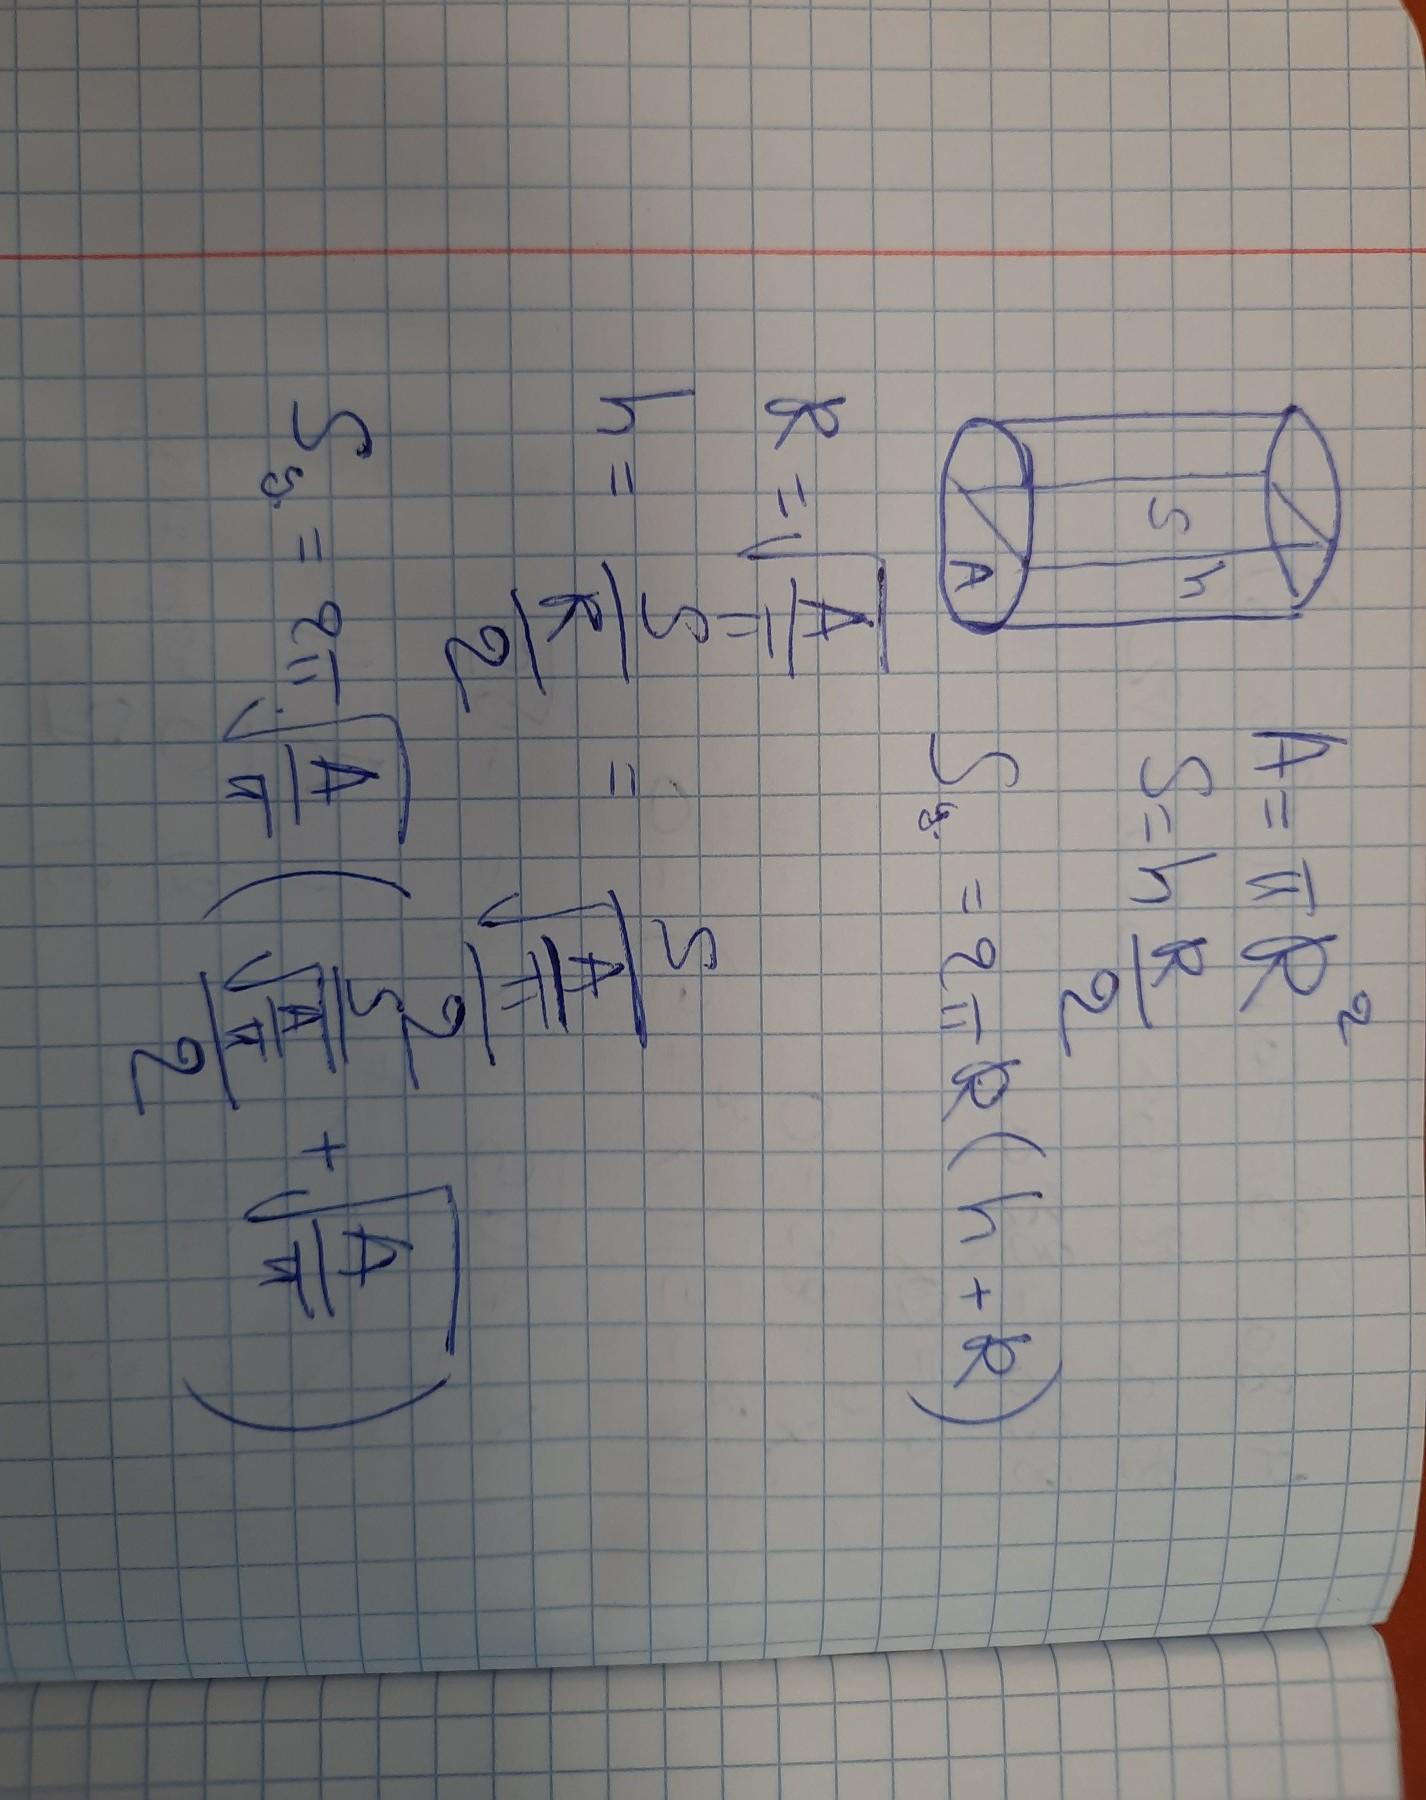 S
h
A
A = πR²
S = h R/2
Sδ. = 2πR(h + R)
R = √(A/π)
h = S/(R/2) = S/(√(A/π)/2)
Sδ. = 2π√(A/π) (S/(√(A/π)/2) + √(A/π))